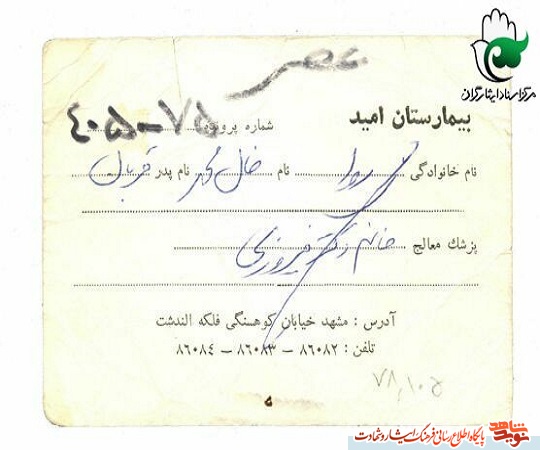 عصر
مرکز اسناد ایثارگران
بیمارستان امید
شماره پرونده ۷۵-۴۰۵
نام خانوادگی نام خال محمد نام پدر قربان
پزشك معالج خانم دکتر فیروزی
آدرس : مشهد خیابان کوهسنگی فلکه الندشت
تلفن : ۸۶۰۸۲ – ۸۶۰۸۳ – ۸۶۰۸۴
۵
نوید شاهد پایگاه اطلاع رسانی فرهنگ ایثار و شهادت